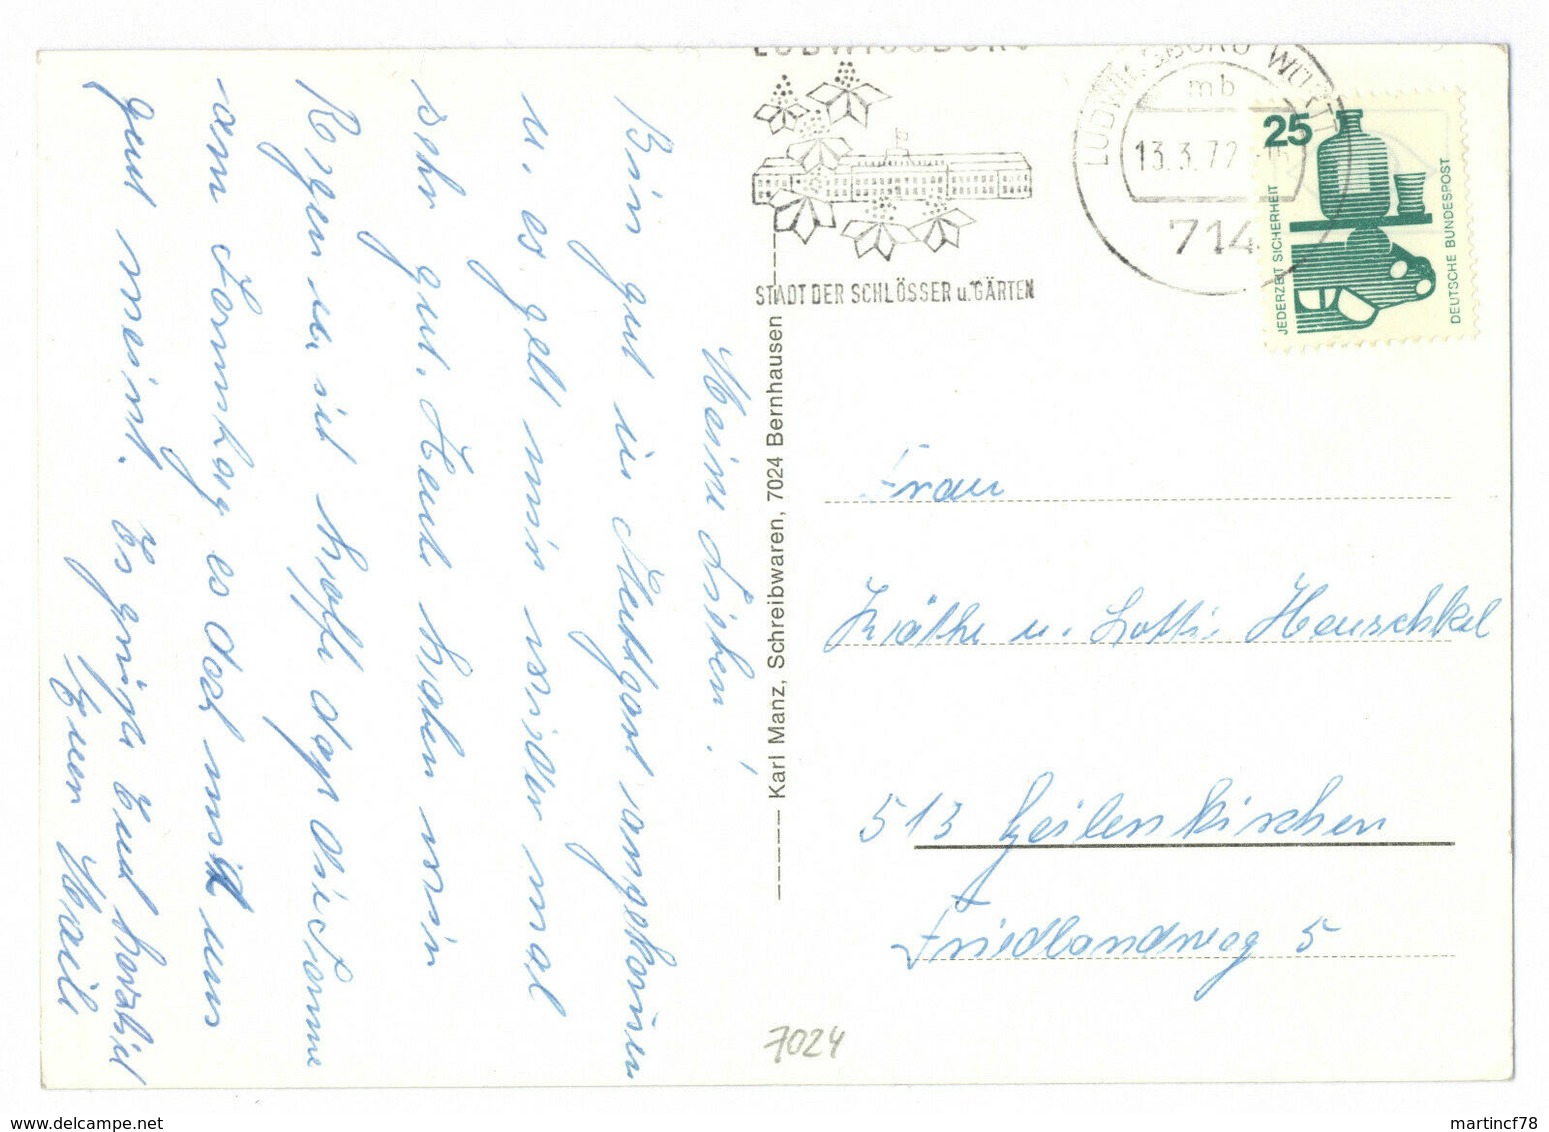 LUDWIGSBURG
STADT DER SCHLÖSSER u. GÄRTEN
LUDWIGSBURG WÜRTT
mb
13.3.72
714
25
JEDERZEIT SICHERHEIT
DEUTSCHE BUNDESPOST
Meine Lieben!
Bin gut in Stuttgart angekommen
u. es geht mir wieder mal
sehr gut. Heute haben wir
Regen u. ich hoffe daß die Sonne
am Sonntag es doch mit uns
gut meint. Es grüßt Euch herzlich
Euer
Karl Manz, Schreibwaren, 7024 Bernhausen
Frau
Käthe u. Lotti Hauschkel
513 Geilenkirchen
Friedlandweg 5
7024
martincf78